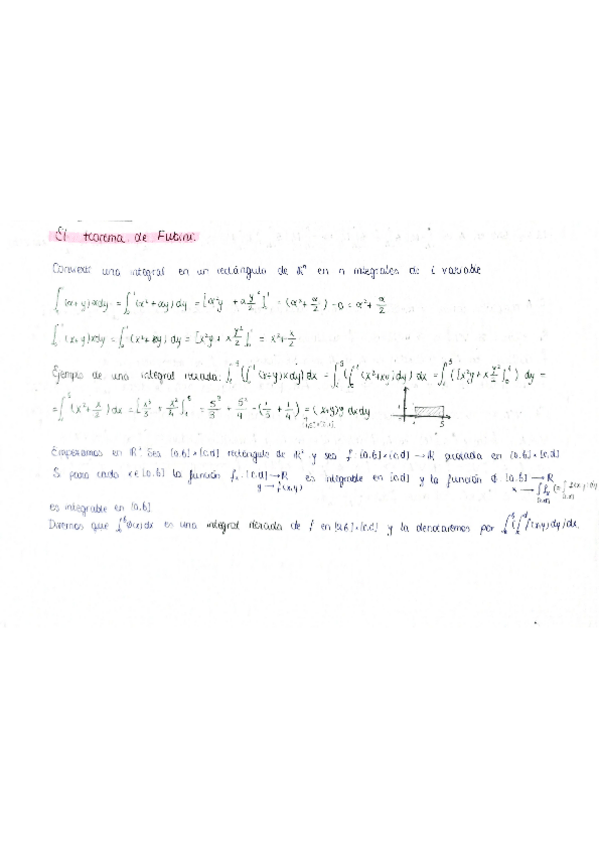 El teorema de Fubini.
Convierte una integral en un rectángulo de ℝⁿ en n integrales de 1 variable
∫₀¹(α+y)αdy = ∫₀¹(α²+αy)dy = [α²y + α y²/2]₀¹ = (α²+α/2) - 0 = α²+α/2
∫₀¹(x+y)xdy = ∫₀¹(x²+xy)dy = [x²y + x y²/2]₀¹ = x²+x/2
Ejemplo de una integral iterada: ∫₁⁵(∫₀¹(x+y)xdy)dx = ∫₁⁵(∫₀¹(x²+xy)dy)dx = ∫₁⁵([x²y + x y²/2]₀¹)dy =
= ∫₁⁵(x²+x/2)dx = [x³/3 + x²/4]₁⁵ = 5³/3 + 5²/4 - (1/3 + 1/4) = (x+y)y dxdy
Empezamos en ℝ². Sea [a,b]×[c,d] rectángulo de ℝ² y sea f: [a,b]×[c,d]→ℝ acotada en [a,b]×[c,d]
Si para cada x∈[a,b] la función fₓ: [c,d]→ℝ es integrable en [c,d] y la función Φ: [a,b]→ℝ
y→f(x,y)
es integrable en [a,b]
Diremos que ∫ₐᵇΦ(x)dx es una integral iterada de f en [a,b]×[c,d] y la denotaremos por ∫ₐᵇ(∫f(x,y)dy)dx